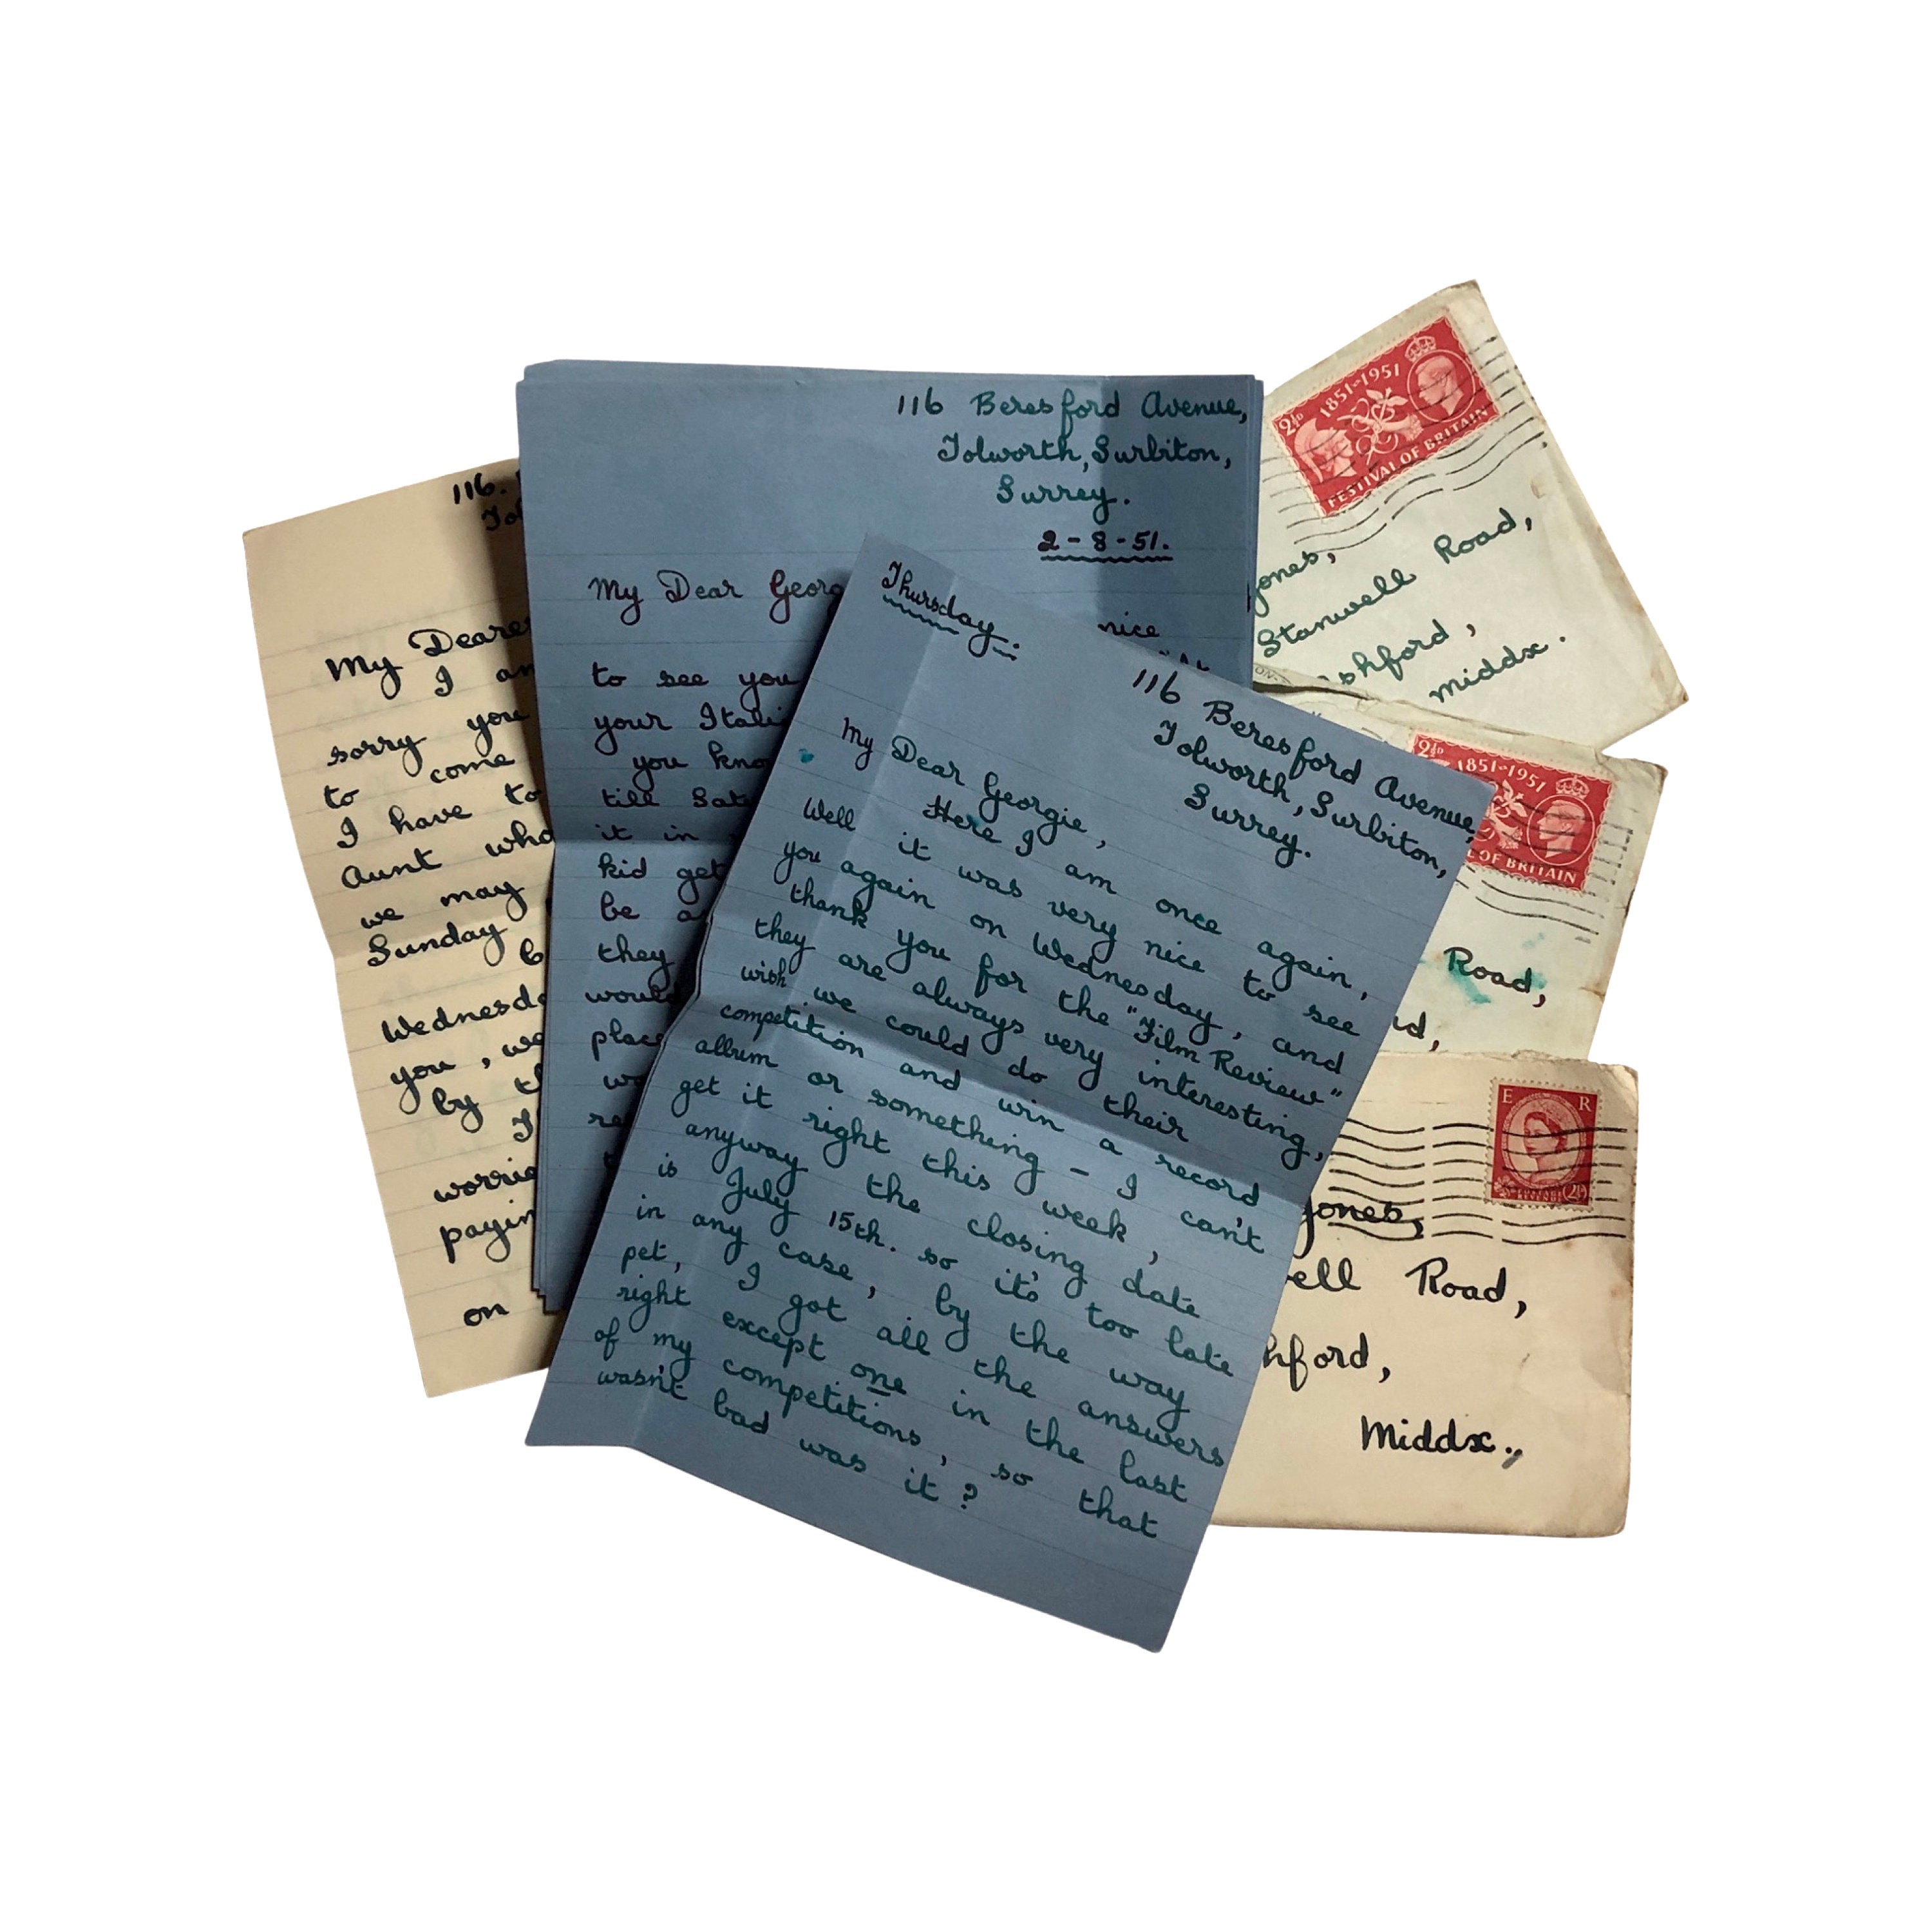 116.
My
I
sorry you
to come
I have to
Aunt
we may
Sunday
you,
by
on
116 Beresford Avenue,
Tolworth, Surbiton,
Surrey.
2-8-51.
My Dear
nice
to see you
your
you
till
it in
kid get
be
they
place
Thursday.
116 Beresford Avenue,
Tolworth, Surbiton,
Surrey.
My Dear Georgie,
Here I am once again,
Well it was very nice to see
you again on Wednesday, and
thank you for the "Film Review"
they are always very interesting,
wish we could do their
competition and win a record
album or something - I can't
get it right this week,
anyway the closing date
is July 15th. so it's too late
in any case, by the way
pet, I got all the answers
right except one in the last
of my competitions, so that
wasn't bad was it?
2½D 1851-1951
FESTIVAL OF BRITAIN
Jones,
Stanwell Road,
Middx.
2½D 1851-1951
OF BRITAIN
Road,
E R
Jones,
Road,
Middx.,